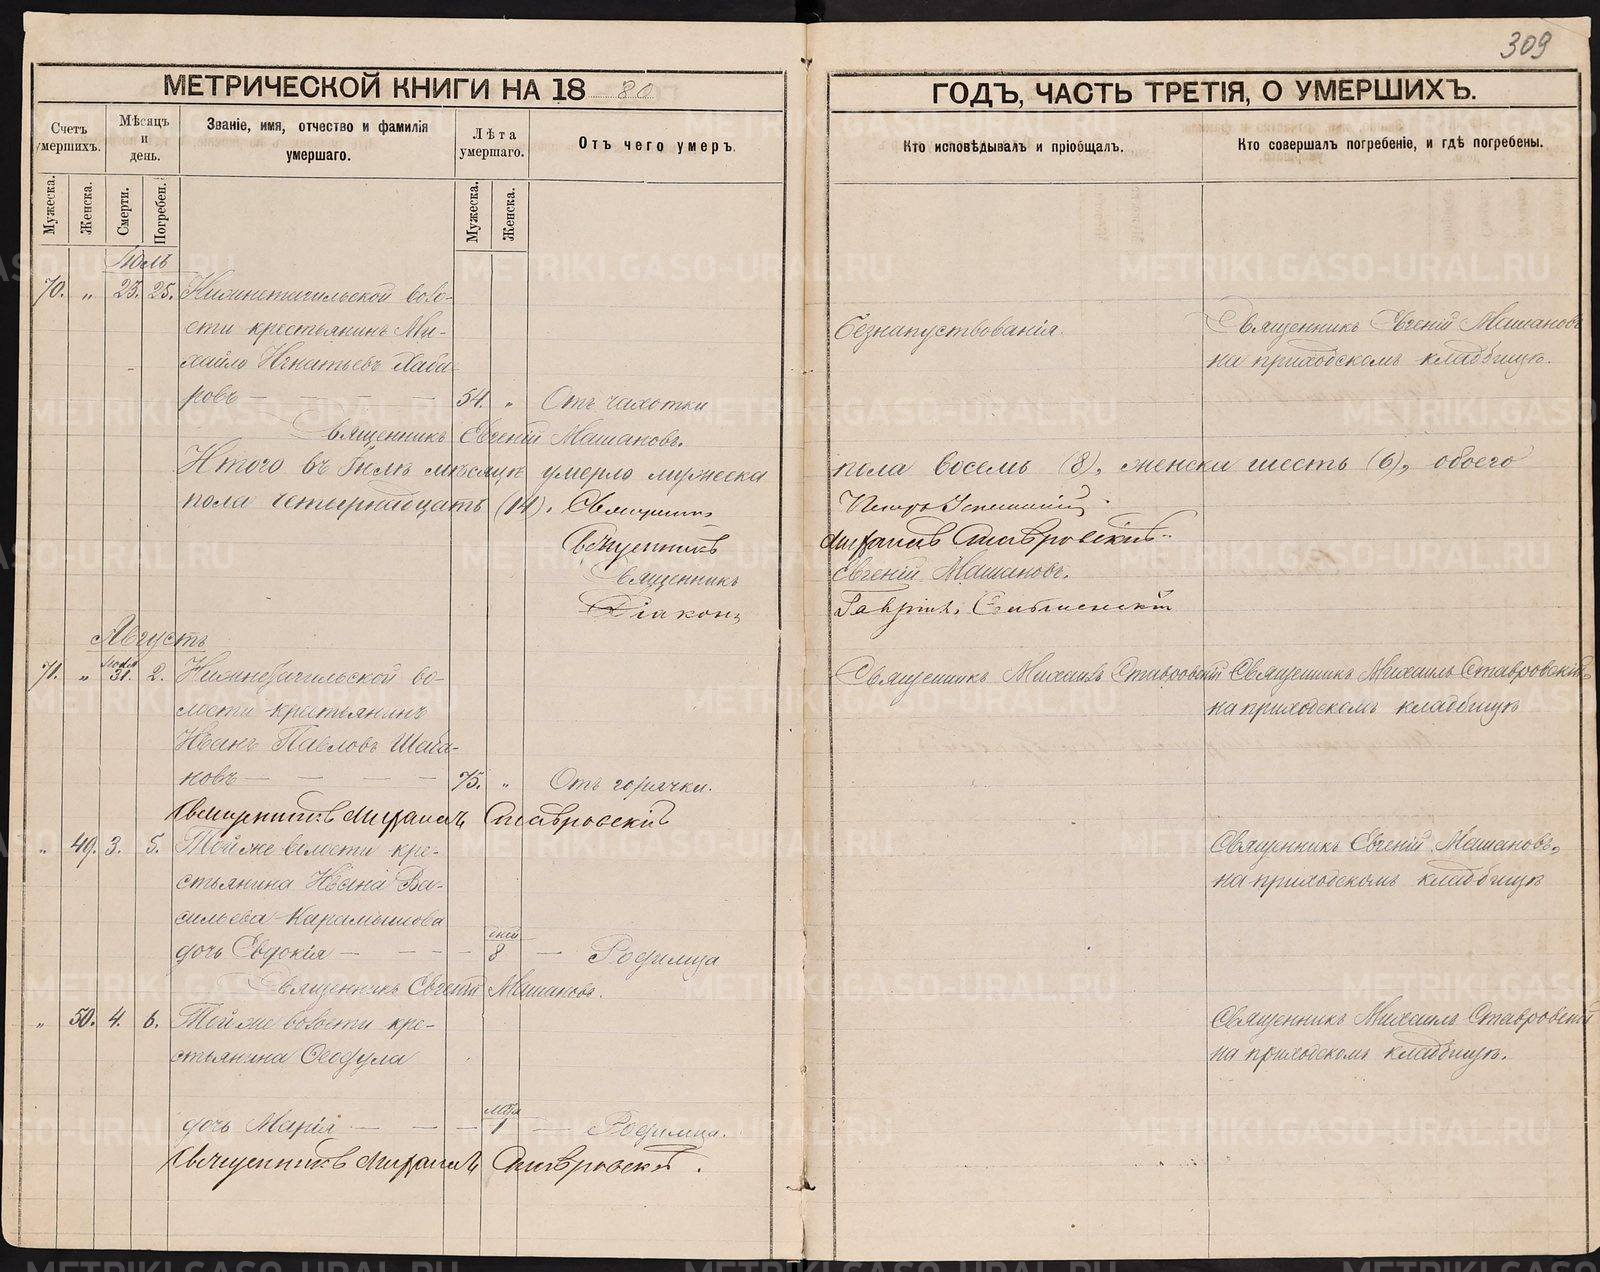 309
МЕТРИЧЕСКОЙ КНИГИ НА 1880
ГОДЪ, ЧАСТЬ ТРЕТІЯ, О УМЕРШИХЪ.
Счетъ умершихъ.
Мѣсяцъ и день.
Званіе, имя, отчество и фамилія умершаго.
Лѣта умершаго.
Отъ чего умеръ.
Кто исповѣдывалъ и пріобщалъ.
Кто совершалъ погребеніе, и гдѣ погребены.
Мужеска.
Женска.
Смерти.
Погребен.
Мужеска.
Женска.
Іюль
70. „ 23. 25. Нижнетагильской воло-
сти крестьянинъ Ми-
хаилъ Игнатьевъ Хаба-
ровъ — 54. „ Отъ чахотки
Безнапутствованія
Священникъ Евгеній Машановъ
на приходскомъ кладбищѣ.
Священникъ Евгеній Машановъ.
Итого въ Іюлѣ мѣсяцѣ умерло мужеска
пола восемь (8), женска шесть (6), обоего
пола четырнадцать (14). Священникъ
Петръ
Священникъ Михаилъ Ставровскій
Священникъ Евгеній Машановъ.
Діаконъ Гавріилъ
Августъ
71. „ Іюля 31. 2. Нижнетагильской во-
лости крестьянинъ
Иванъ Павловъ Шаба-
новъ — 75. „ Отъ горячки.
Священникъ Михаилъ Ставровскій
Священникъ Михаилъ Ставровскій
на приходскомъ кладбищѣ
Священникъ Михаилъ Ставровскій
„ 49. 3. 5. Той же волости кре-
стьянина Ивана Ва-
сильева Карамышова
дочь Евдокія — дней 8 — Родимца
Священникъ Евгеній Машановъ,
на приходскомъ кладбищѣ
Священникъ Евгеній Машановъ.
„ 50. 4. 6. Той же волости кре-
стьянина Ѳеодула
дочь Марія — мѣся 1 — Родимца.
Священникъ Михаилъ Ставровскій
на приходскомъ кладбищѣ.
Священникъ Михаилъ Ставровскій.
METRIKI.GASO-URAL.RU